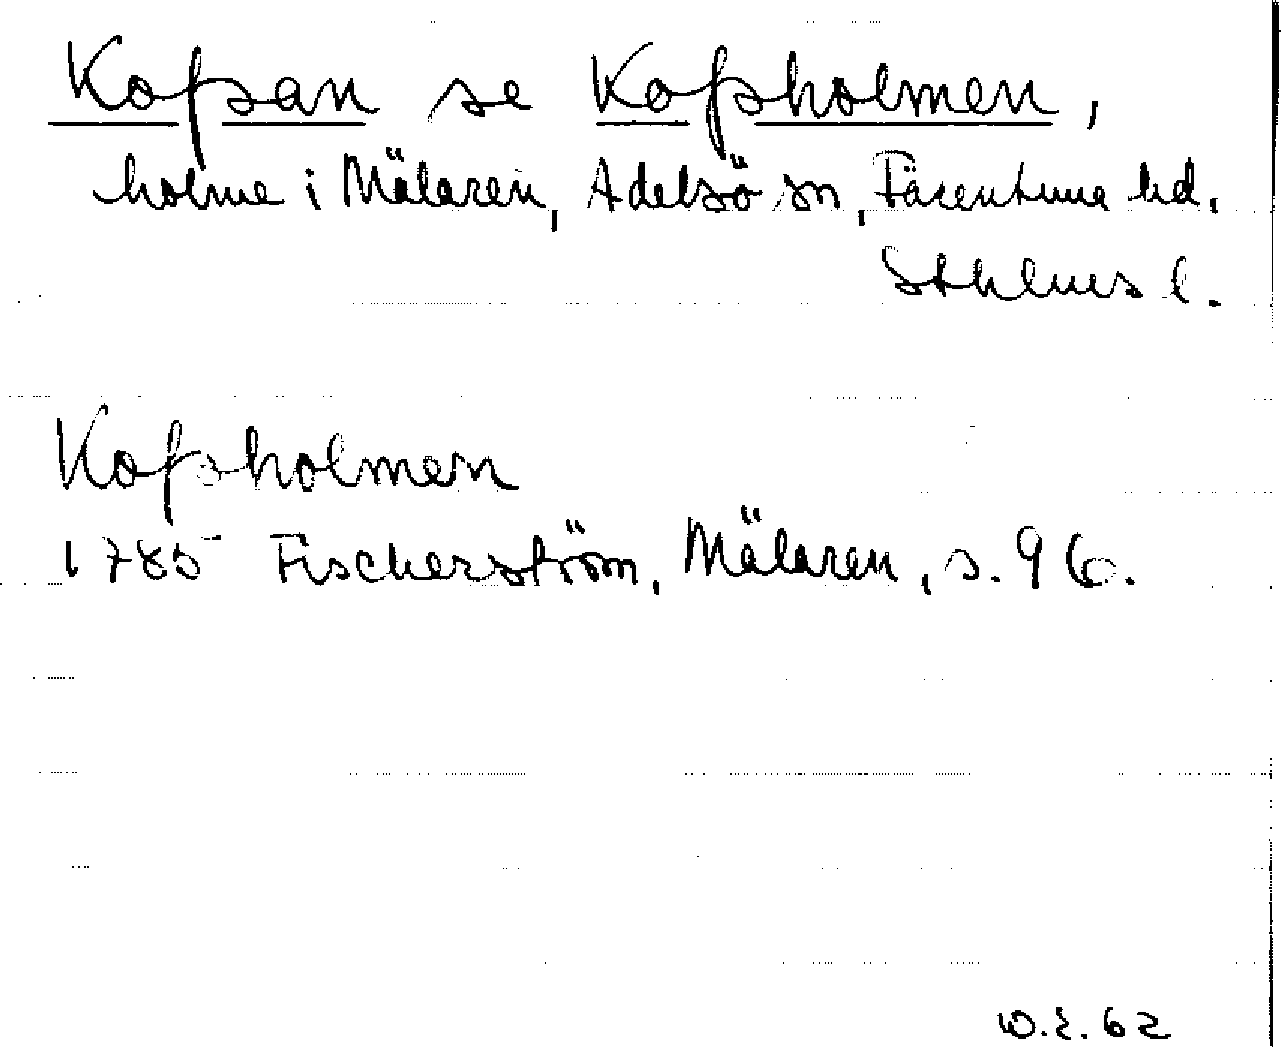 Kofsan se Kofsholmen,
holme i Mälaren, Adelsö sn, Färentuna hd.
Sthlms l.
Kofsholmen
1785 Fischerström, Mälaren, s. 96.
W.E. 62